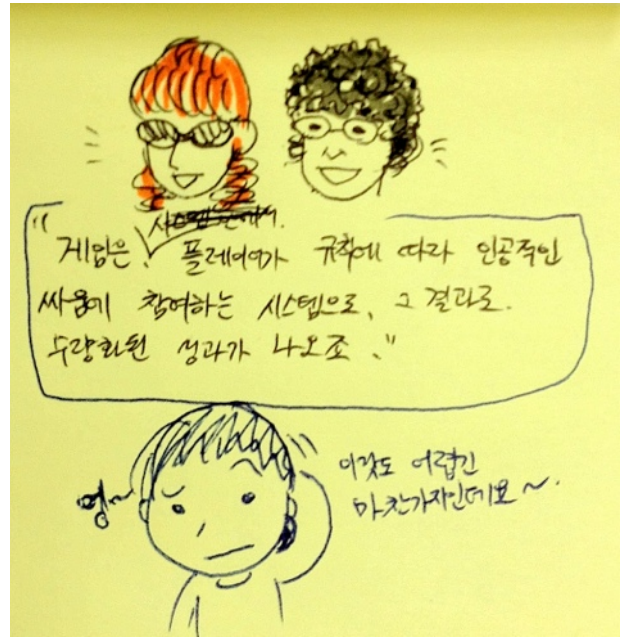 "게임은, 플레이어가 규칙에 따라 인공적인
싸움에 참여하는 시스템으로, 그 결과로.
수량화된 성과가 나오죠."
이것도 어렵긴
마찬가지인데요~.